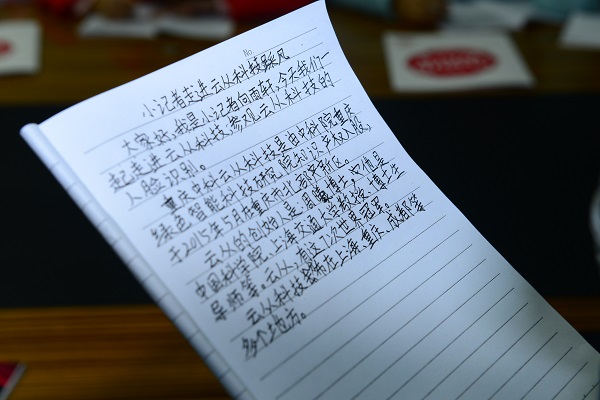 No.
小记者走进云从科技采风
大家好,我是小记者向雨轩,今天我们一
起走进云从科技,参观云从科技的
人脸识别。
重庆中科云从科技是由中科院重庆
绿色智能科技研究院知识产权入股,
于2015年5月在重庆市北部新区。
云从的创始人是周曦博士,他是
中国科学院、上海交通大学教授、博士生
导师等。云从,有立7次世界冠军。
云从科技分布在上海、重庆、成都等
多个地方。